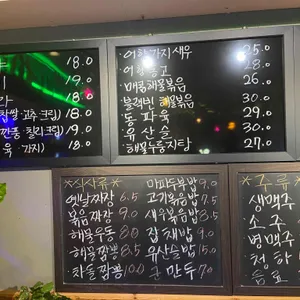 18.0
18.0
18.0
찹쌀 고추 크림) 19.0
깐풍 칠리 크림) 19.0
육 가지) 18.0
어향가지새우 25.0
어향동고 28.0
매콤해물볶음 26.
블랙빈 해물볶음 30.0
동파육 29.0
유산슬 30.0
해물누룽지탕 27.0
※식사류※
옛날짜장 6.5
볶음짜장 9.0
해물우동 8.0
해물짬뽕 8.5
차돌짬뽕 10.0
마파두부밥 9.0
고기볶음밥 7.5
새우볶음밥 8.0
잡채밥 9.0
유산슬밥 15.0
군만두 7.0
※주류
생맥주
소주
병맥주
천하
음료